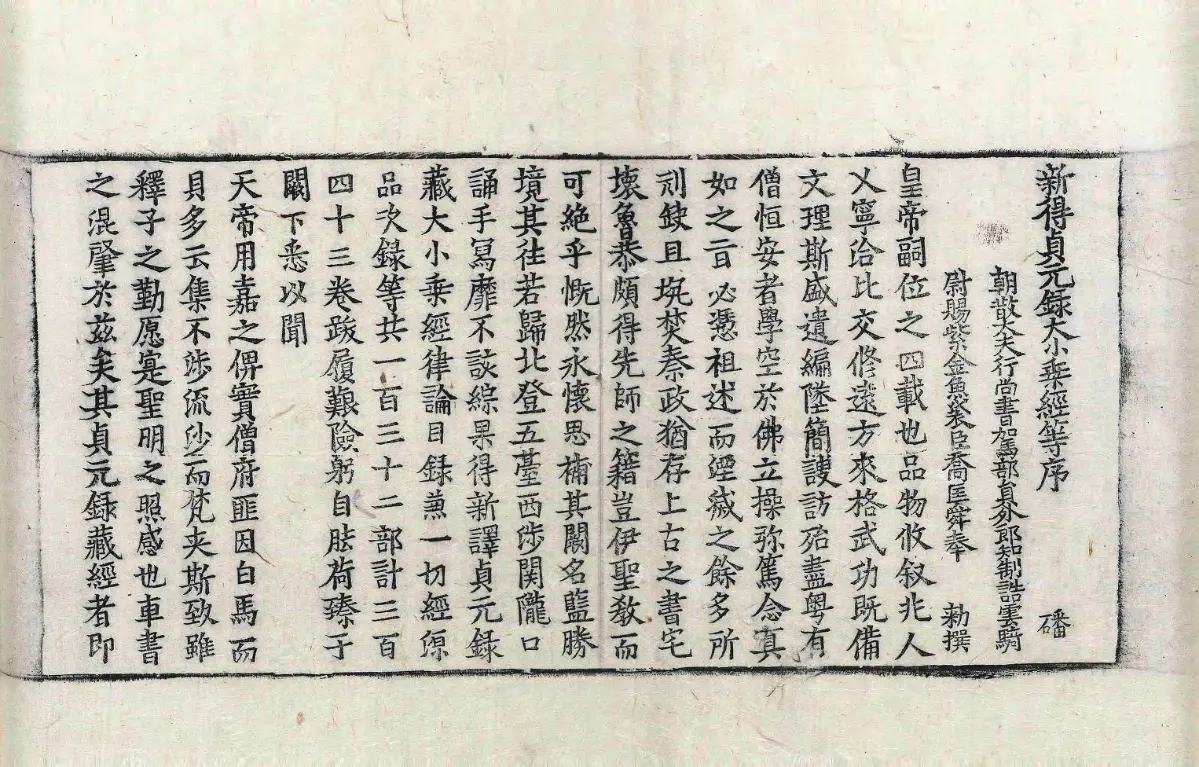 新得貞元錄大小乗經等序 磻
朝散大夫行尚書駕部員外郎知制誥雲騎
尉賜紫金魚袋臣喬匡舜奉 勅撰
皇帝嗣位之四載也品物攸叙兆人
乂寧洽比交修逺方來格武功既備
文理斯盛遺編墜簡謏訪殆盡粤有
僧恒安者學空於佛立操弥篤念真
如之旨必憑祖述而湮微之餘多所
刓鈌且坑焚秦政猶存上古之書宅
壞魯恭頗得先師之籍豈伊聖教而
可絶乎慨然永懷思補其闕名藍勝
境其往若歸北登五臺西涉関隴口
誦手冩靡不該綜果得新譯貞元録
藏大小乗經律論目録兼一切經源
品次録等共一百三十二部計三百
四十三卷跋履艱險躬自胠荷臻于
闕下悉以聞
天帝用嘉之俾寘僧府匪因白馬而
貝多云集不涉流沙而梵夹斯致雖
釋子之勤愿寔聖明之照感也車書
之混肇於兹矣其貞元録藏經者即